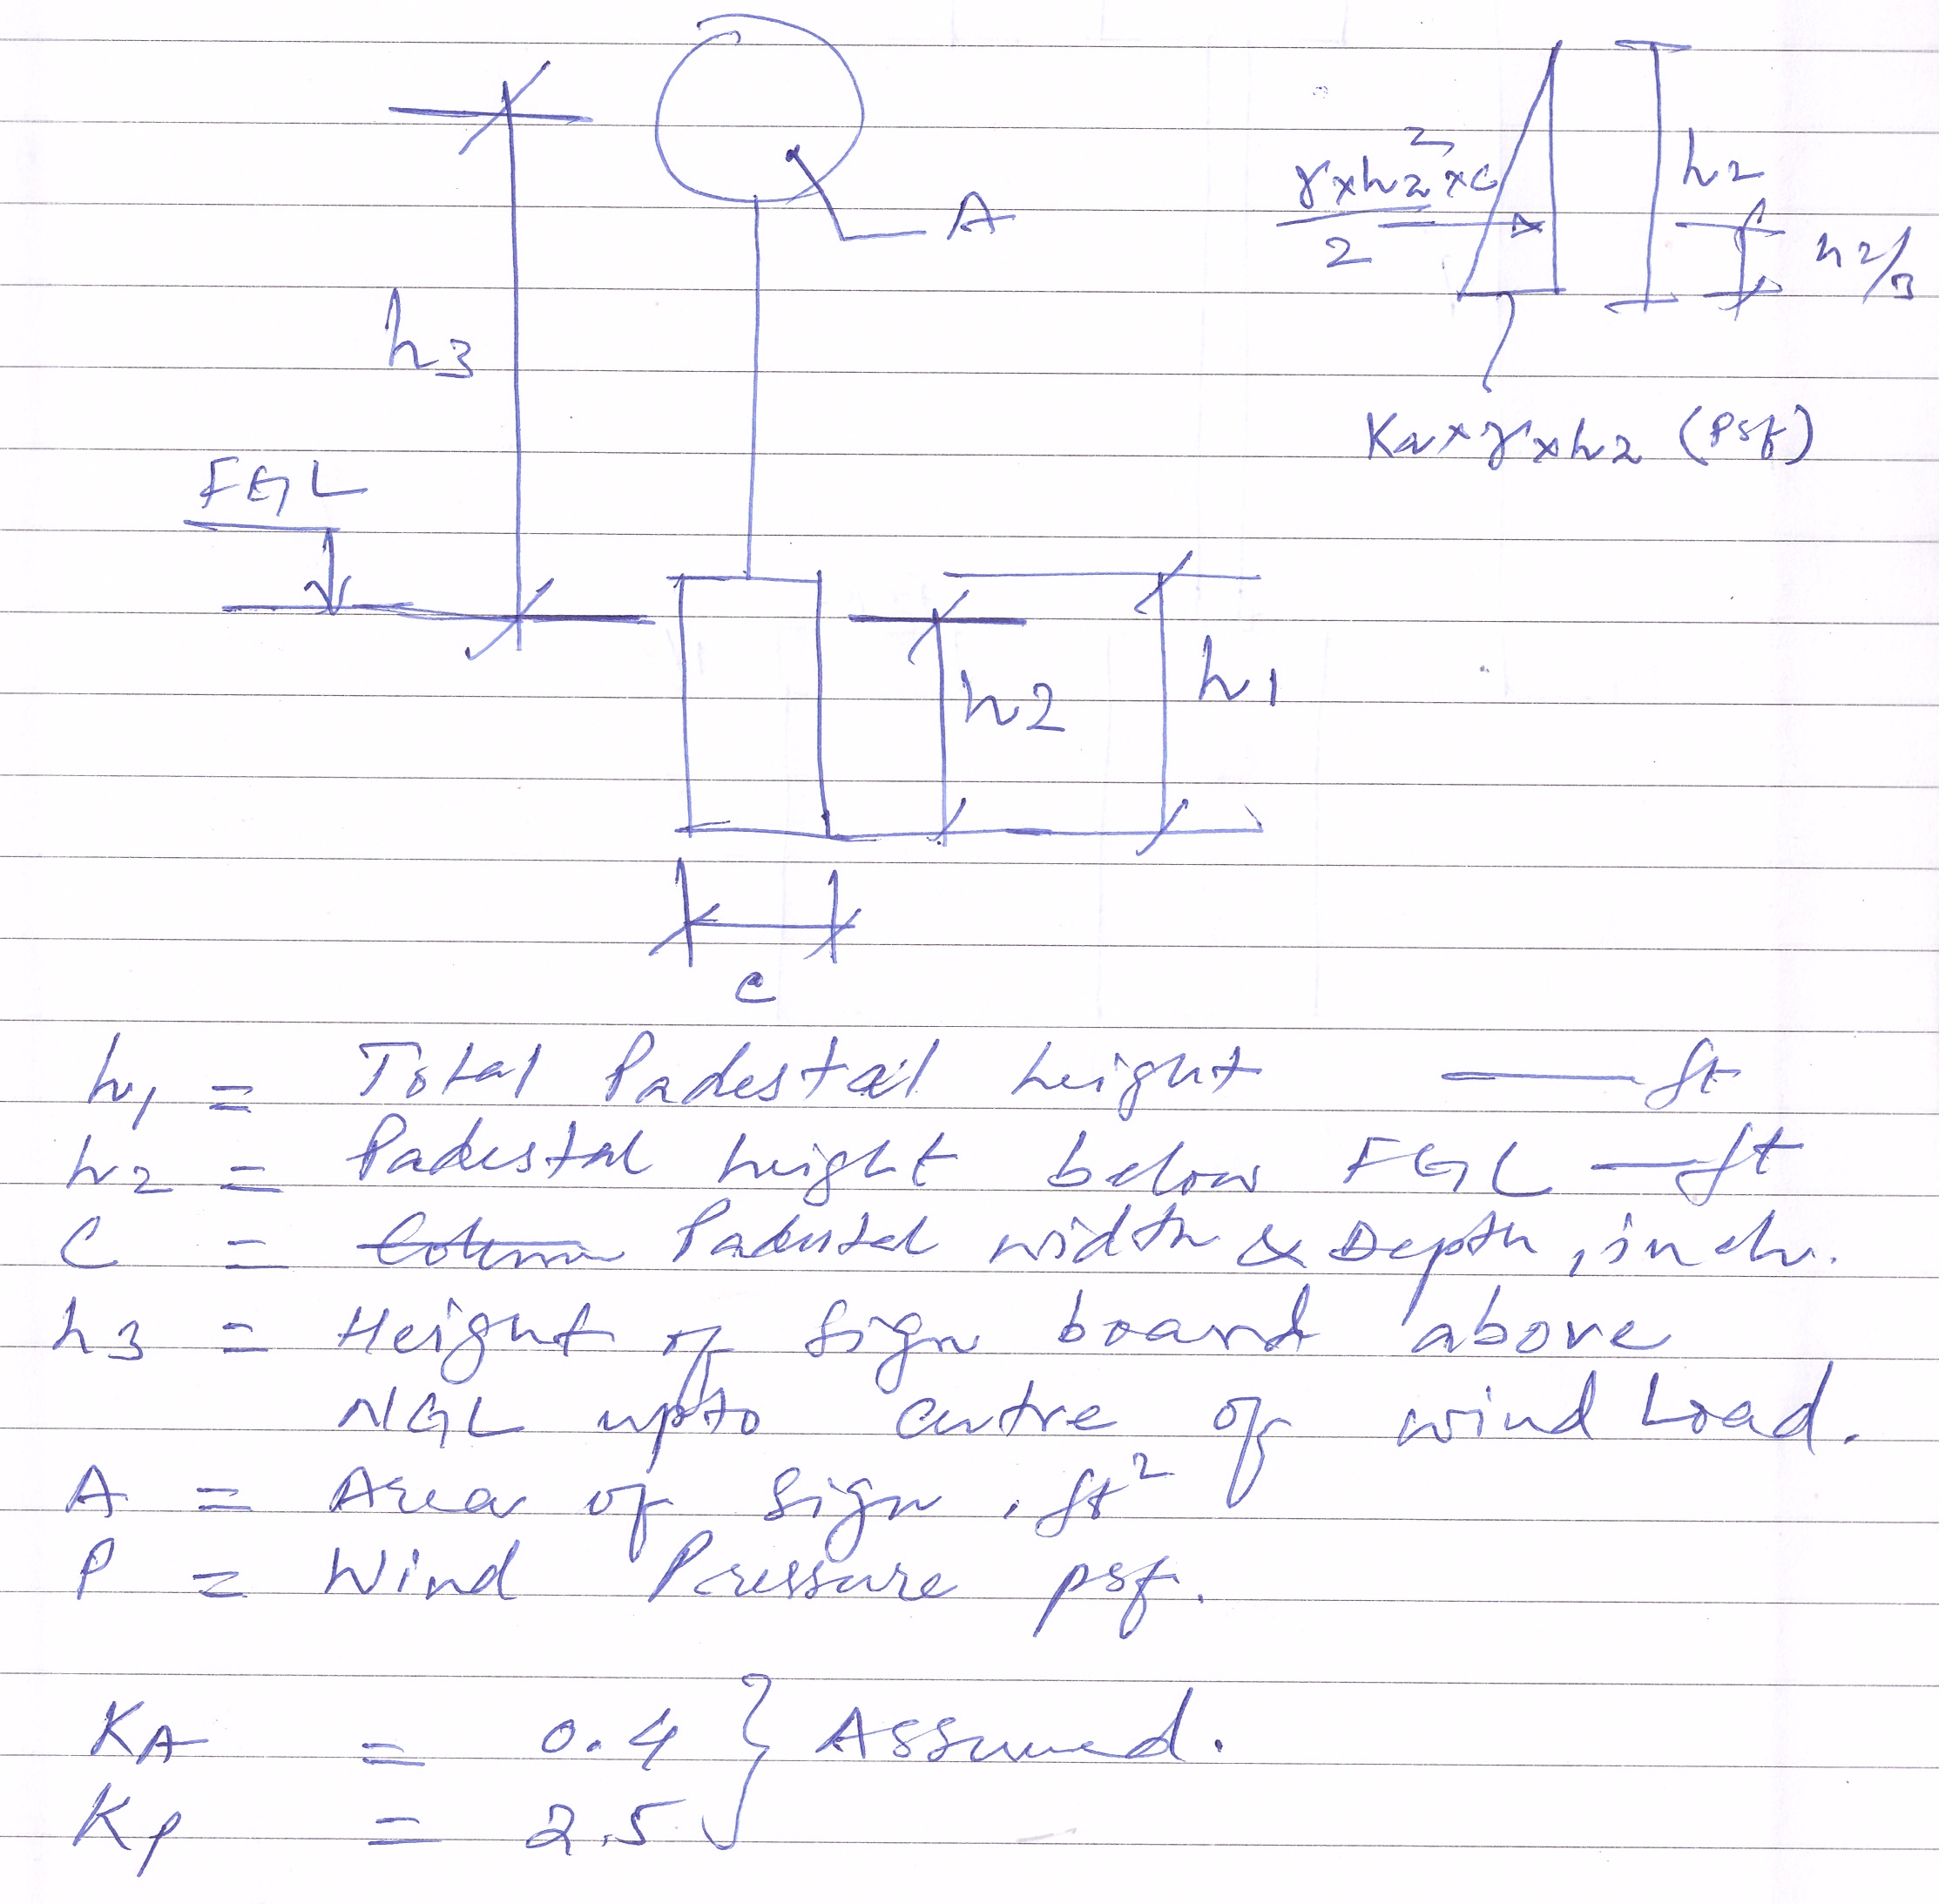 A
γxh2²xc
2
h2
h2/3
h3
Kaxγxh2 (Psf)
FGL
h2
h1
c
h1 = Total Padestal height — ft
h2 = Padestal height below FGL — ft
C = Column Padestal width & Depth, inch.
h3 = Height of Sign board above
NGL upto centre of wind Load.
A = Area of Sign, ft²
P = Wind Pressure psf.
KA = 0.4 } Assumed.
Kp = 2.5